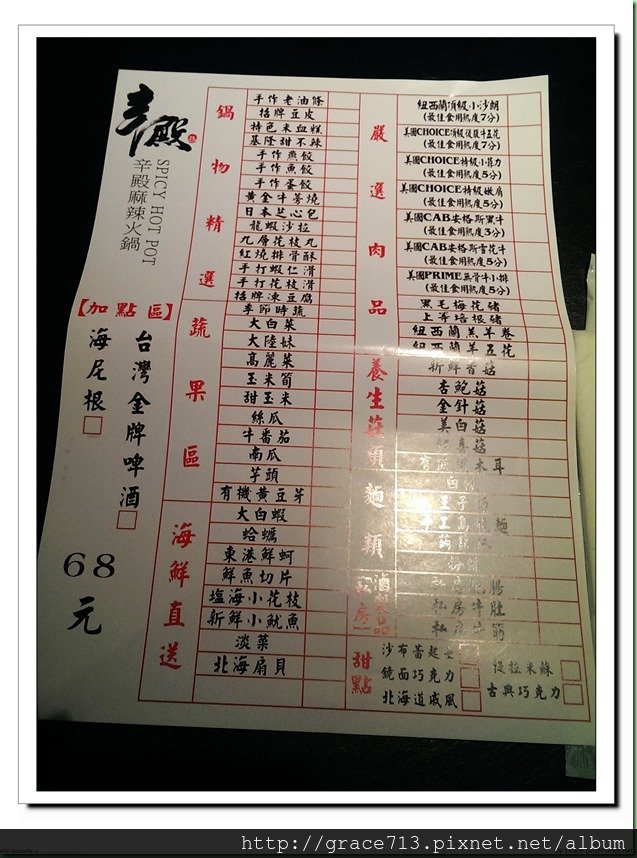 辛殿
SPICY HOT POT
辛殿麻辣火鍋
【加點區】
台灣金牌啤酒
海尼根
68
元
鍋物精選
手作老油條
招牌豆皮
特色米血糕
基隆甜不辣
手作燕餃
手作魚餃
手作蛋餃
黃金牛蒡燒
日本芝心包
龍蝦沙拉
九層花枝丸
紅燒排骨酥
手打蝦仁滑
手打花枝滑
招牌凍豆腐
蔬果區
季節時蔬
大白菜
大陸妹
高麗菜
玉米筍
甜玉米
絲瓜
牛番茄
南瓜
芋頭
有機黃豆芽
海鮮直送
大白蝦
蛤蠣
東港鮮蚵
鮮魚切片
塩海小花枝
新鮮小魷魚
淡菜
北海扇貝
嚴選肉品
紐西蘭頂級小沙朗
(最佳食用熟度7分)
美國CHOICE頂級後腹牛五花
(最佳食用熟度7分)
美國CHOICE特級小菲力
(最佳食用熟度5分)
美國CHOICE特級嫩肩
(最佳食用熟度5分)
美國CAB安格斯黑牛
(最佳食用熟度3分)
美國CAB安格斯雪花牛
(最佳食用熟度5分)
美國PRIME無骨牛小排
(最佳食用熟度5分)
黑毛梅花豬
上等培根豬
紐西蘭羔羊卷
紐西蘭羊五花
養生菇類
新鮮香菇
杏鮑菇
金針菇
美白菇
木耳
麵類
甜點
沙布蕾起士
提拉米蘇
鏡面巧克力
古典巧克力
北海道戚風
http://grace713.pixnet.net/album